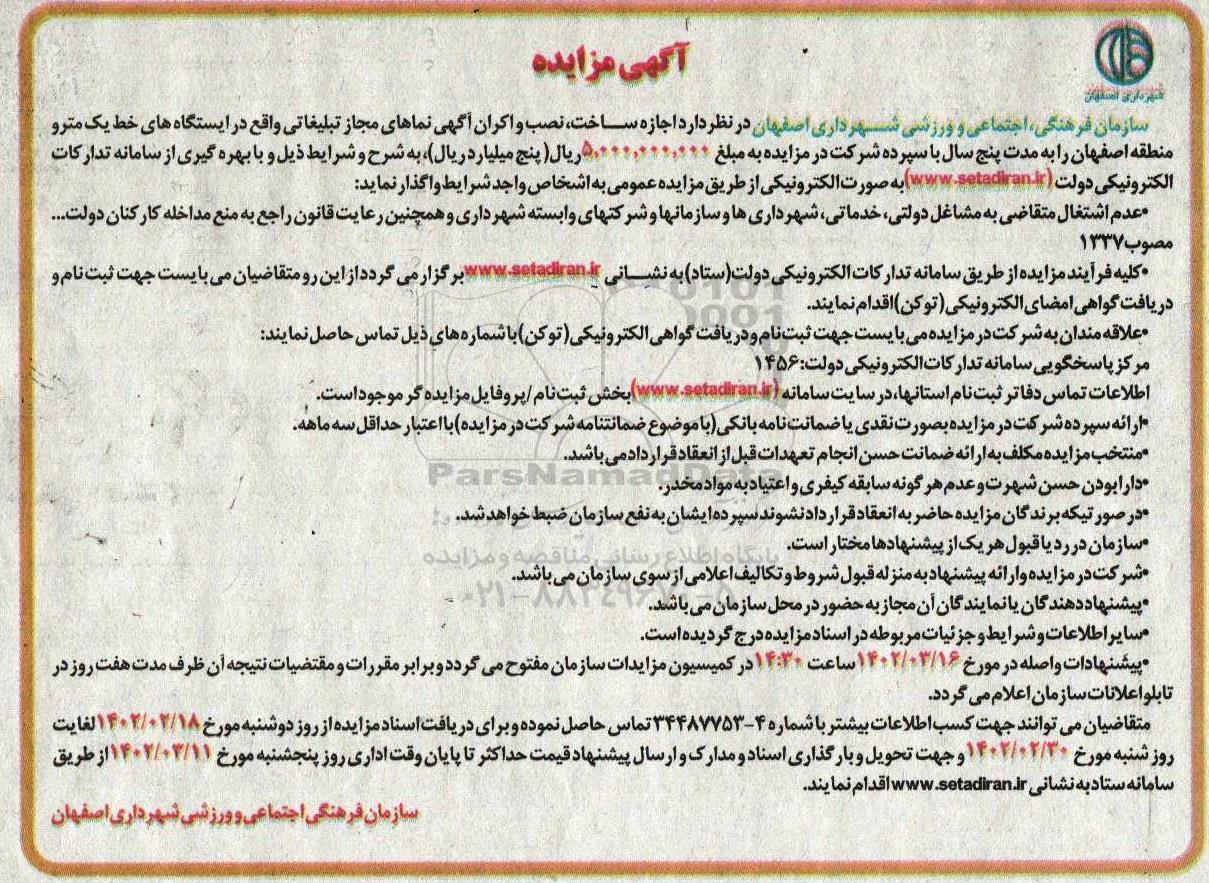 شهرداری اصفهان
آگهی مزایده
سازمان فرهنگی، اجتماعی و ورزشی شهرداری اصفهان در نظر دارد اجازه ساخت، نصب و اکران آگهی نماهای مجاز تبلیغاتی واقع در ایستگاه های خط یک مترو
منطقه اصفهان را به مدت پنج سال با سپرده شرکت در مزایده به مبلغ ۵,۰۰۰,۰۰۰,۰۰۰ ریال( پنج میلیارد ریال)، به شرح و شرایط ذیل و با بهره گیری از سامانه تدارکات
الکترونیکی دولت (www.setadiran.ir) به صورت الکترونیکی از طریق مزایده عمومی به اشخاص واجد شرایط واگذار نماید:
•عدم اشتغال متقاضی به مشاغل دولتی، خدماتی، شهرداری ها و سازمانها و شرکتهای وابسته شهرداری و همچنین رعایت قانون راجع به منع مداخله کارکنان دولت...
مصوب ۱۳۳۷
•کلیه فرآیند مزایده از طریق سامانه تدارکات الکترونیکی دولت(ستاد) به نشانی www.setadiran.ir برگزار می گردد از این رو متقاضیان می بایست جهت ثبت نام و
دریافت گواهی امضای الکترونیکی (توکن) اقدام نمایند.
•علاقه مندان به شرکت در مزایده می بایست جهت ثبت نام و دریافت گواهی الکترونیکی (توکن) با شماره های ذیل تماس حاصل نمایند:
مرکز پاسخگویی سامانه تدارکات الکترونیکی دولت: ۱۴۵۶
اطلاعات تماس دفاتر ثبت نام استانها، در سایت سامانه (www.setadiran.ir) بخش ثبت نام /پروفایل مزایده گر موجود است.
•ارائه سپرده شرکت در مزایده بصورت نقدی یا ضمانت نامه بانکی(با موضوع ضمانتنامه شرکت در مزایده) با اعتبار حداقل سه ماهه.
•منتخب مزایده مکلف به ارائه ضمانت حسن انجام تعهدات قبل از انعقاد قرارداد می باشد.
•دارا بودن حسن شهرت و عدم هر گونه سابقه کیفری و اعتیاد به مواد مخدر.
•در صورتیکه برندگان مزایده حاضر به انعقاد قرارداد نشوند سپرده ایشان به نفع سازمان ضبط خواهد شد.
•سازمان در رد یا قبول هر یک از پیشنهادها مختار است.
•شرکت در مزایده و ارائه پیشنهاد به منزله قبول شروط و تکالیف اعلامی از سوی سازمان می باشد.
•پیشنهاد دهندگان یا نمایندگان آن مجاز به حضور در محل سازمان می باشد.
•سایر اطلاعات و شرایط و جزئیات مربوطه در اسناد مزایده درج گردیده است.
•پیشنهادات واصله در مورخ ۱۴۰۲/۰۳/۱۶ ساعت ۱۴:۳۰ در کمیسیون مزایدات سازمان مفتوح می گردد و برابر مقررات و مقتضیات نتیجه آن ظرف مدت هفت روز در
تابلو اعلانات سازمان اعلام می گردد.
متقاضیان می توانند جهت کسب اطلاعات بیشتر با شماره ۴-۳۴۴۸۷۷۵۳ تماس حاصل نموده و برای دریافت اسناد مزایده از روز دوشنبه مورخ ۱۴۰۲/۰۲/۱۸ لغایت
روز شنبه مورخ ۱۴۰۲/۰۲/۳۰ و جهت تحویل و بارگذاری اسناد و مدارک و ارسال پیشنهاد قیمت حداکثر تا پایان وقت اداری روز پنجشنبه مورخ ۱۴۰۲/۰۳/۱۱ از طریق
سامانه ستاد به نشانی www.setadiran.ir اقدام نمایند.
سازمان فرهنگی اجتماعی و ورزشی شهرداری اصفهان
ParsNamadData
پایگاه اطلاع رسانی مناقصه و مزایده